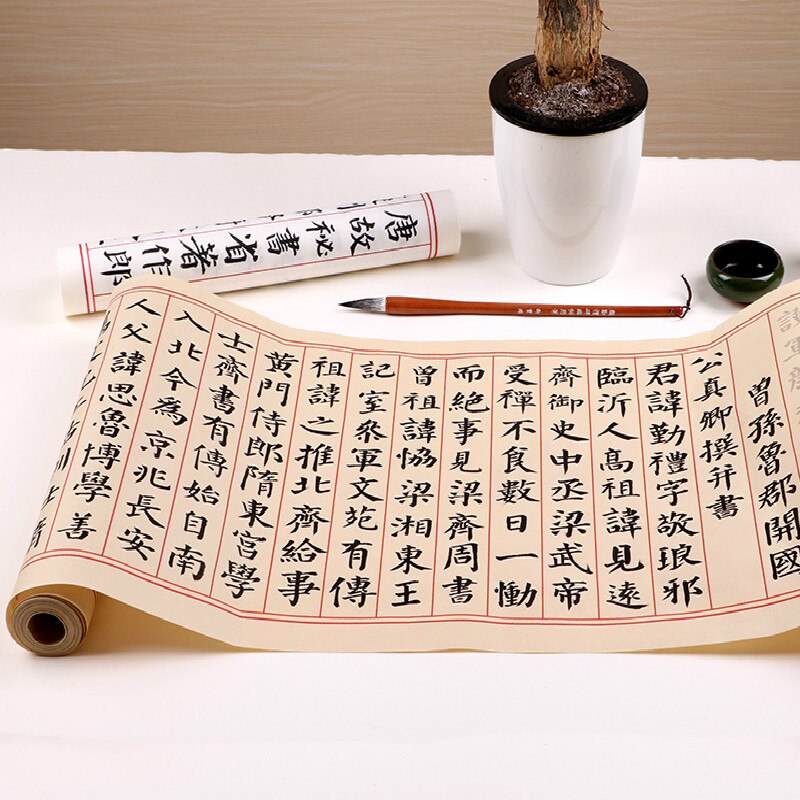 唐故祕書省著作郎
護軍
曾孫魯郡開國
公真卿撰并書
君諱勤禮字敬琅邪
臨沂人高祖諱見遠
齊御史中丞梁武帝
受禪不食數日一慟
而絕事見梁齊周書
曾祖諱協梁湘東王
記室參軍文苑有傳
祖諱之推北齊給事
黃門侍郎隋東宮學
士齊書有傳始自南
入北今為京兆長安
人父諱思魯博學善